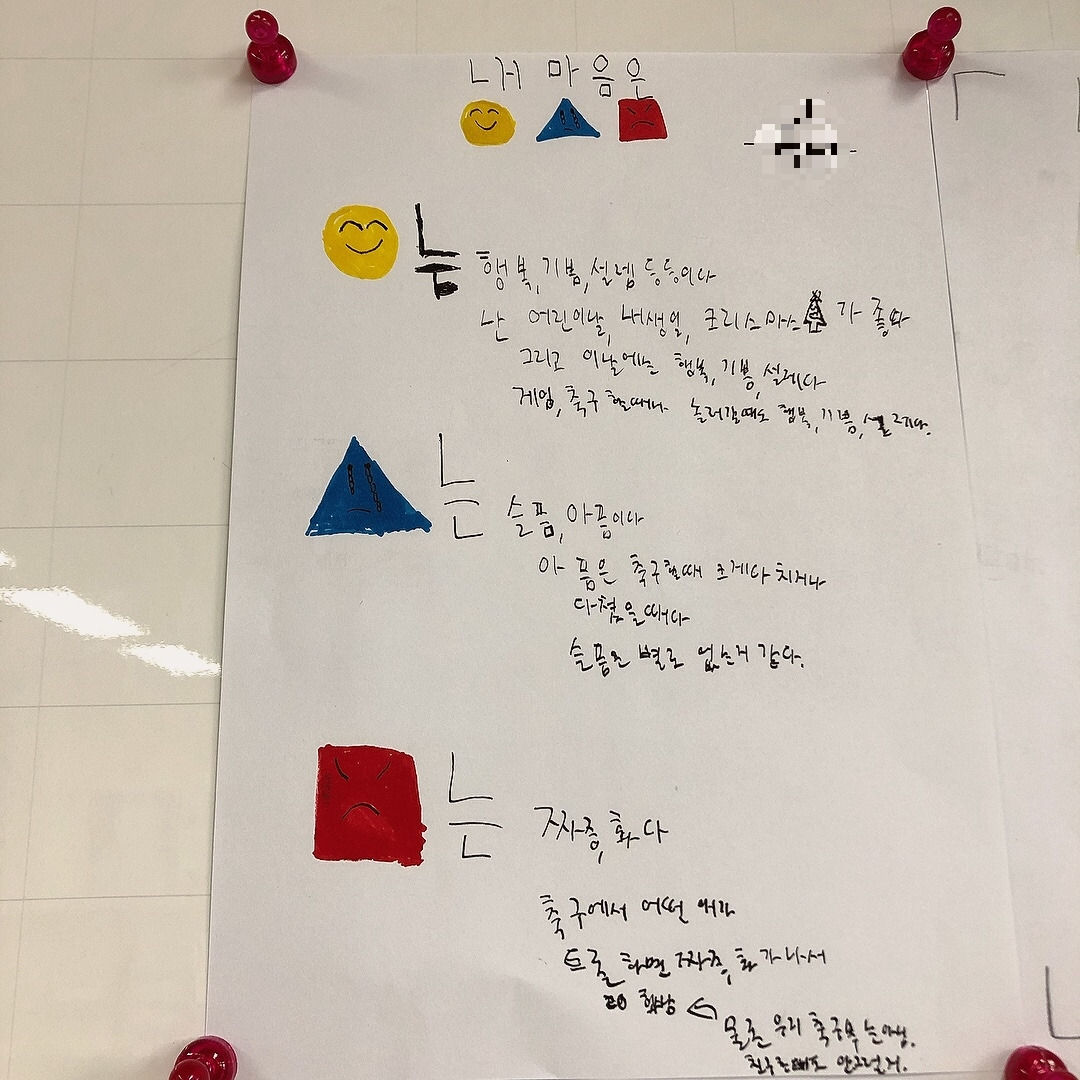 내 마음은
는 행복, 기쁨, 설렘 등등이다
난 어린이날, 내생일, 크리스마스 가 좋다
그리고 이날에는 행복, 기쁨, 설레다
게임, 축구 할때나 놀러갈때도 행복, 기쁨, 설레다.
는 슬픔, 아픔이다
아픔은 축구할때 쪼게다 치거나
다쳤을때다
슬픔은 별로 없는거 같다.
는 짜증, 화다
축구에서 어떤 애가
트롤 하면 짜증, 화가나서
물론 우리 축구부는아님.